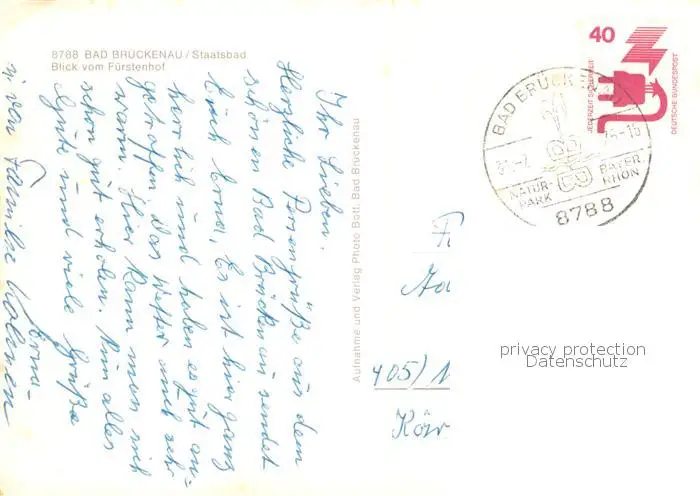 8788 BAD BRÜCKENAU / Staatsbad
Blick vom Fürstenhof
Ihr Lieben.
Herzliche Feriengrüße aus dem
schönen Bad Brückenau sendet
Euch Erna. Es ist hier ganz
herrlich und haben es gut an-
getroffen. Das Wetter auch sehr
warm. Hier kann man sich
schon gut erholen. Nun alles
Gute und viele Grüße
Erna
u. von Familie
Aufnahme und Verlag Photo Bott, Bad Brückenau
40
JEDERZEIT SICHERHEIT
DEUTSCHE BUNDESPOST
BAD BRÜCK
-15
NATUR-
PARK
BAYER.
RHÖN
8788
405/1
privacy protection
Datenschutz